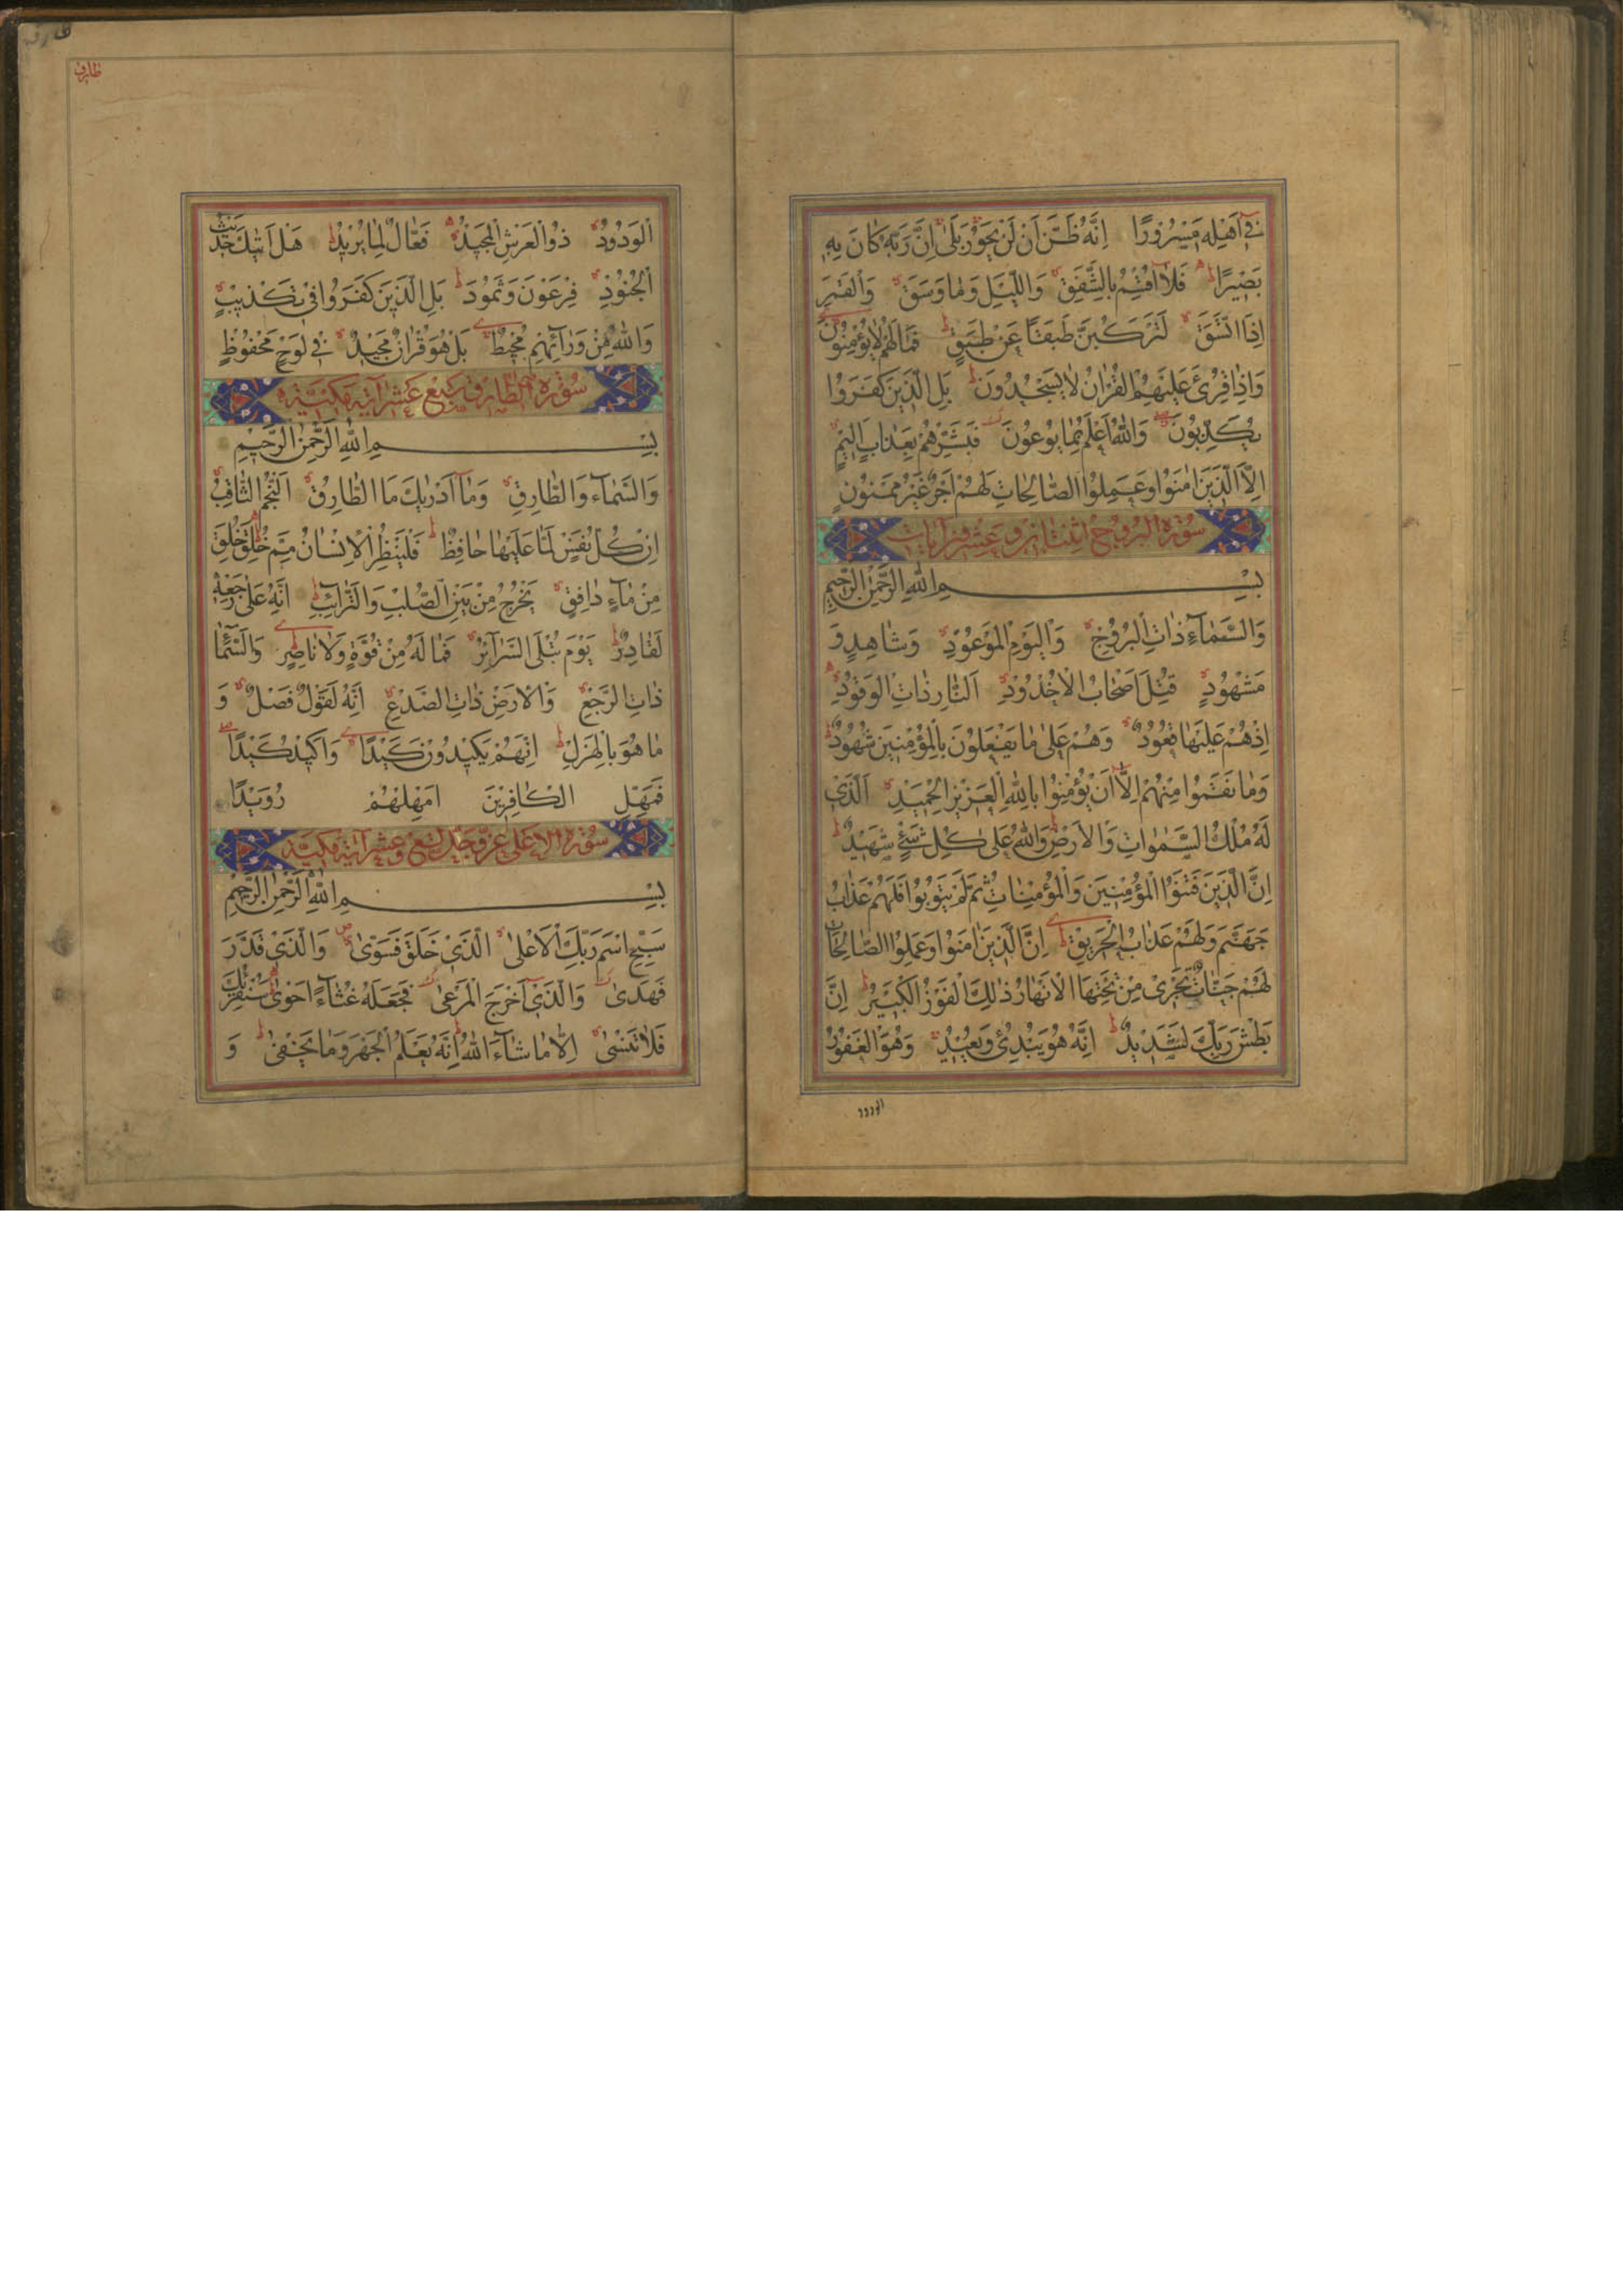 فِي أَهْلِهِ مَسْرُورًا إِنَّهُ ظَنَّ أَنْ لَنْ يَحُورَ بَلَى إِنَّ رَبَّهُ كَانَ بِهِ
بَصِيرًا فَلَا أُقْسِمُ بِالشَّفَقِ وَاللَّيْلِ وَمَا وَسَقَ وَالْقَمَرِ
إِذَا اتَّسَقَ لَتَرْكَبُنَّ طَبَقًا عَنْ طَبَقٍ فَمَا لَهُمْ لَا يُؤْمِنُونَ
وَإِذَا قُرِئَ عَلَيْهِمُ الْقُرْآنُ لَا يَسْجُدُونَ بَلِ الَّذِينَ كَفَرُوا
يُكَذِّبُونَ وَاللَّهُ أَعْلَمُ بِمَا يُوعُونَ فَبَشِّرْهُمْ بِعَذَابٍ أَلِيمٍ
إِلَّا الَّذِينَ آمَنُوا وَعَمِلُوا الصَّالِحَاتِ لَهُمْ أَجْرٌ غَيْرُ مَمْنُونٍ
سُورَةُ الْبُرُوجِ اثْنَتَانِ وَعِشْرُونَ آيَاتٍ
بِسْمِ اللَّهِ الرَّحْمَٰنِ الرَّحِيمِ
وَالسَّمَاءِ ذَاتِ الْبُرُوجِ وَالْيَوْمِ الْمَوْعُودِ وَشَاهِدٍ وَ
مَشْهُودٍ قُتِلَ أَصْحَابُ الْأُخْدُودِ النَّارِ ذَاتِ الْوَقُودِ
إِذْ هُمْ عَلَيْهَا قُعُودٌ وَهُمْ عَلَى مَا يَفْعَلُونَ بِالْمُؤْمِنِينَ شُهُودٌ
وَمَا نَقَمُوا مِنْهُمْ إِلَّا أَنْ يُؤْمِنُوا بِاللَّهِ الْعَزِيزِ الْحَمِيدِ الَّذِي
لَهُ مُلْكُ السَّمَوَاتِ وَالْأَرْضِ وَاللَّهُ عَلَى كُلِّ شَيْءٍ شَهِيدٌ
إِنَّ الَّذِينَ فَتَنُوا الْمُؤْمِنِينَ وَالْمُؤْمِنَاتِ ثُمَّ لَمْ يَتُوبُوا فَلَهُمْ عَذَابُ
جَهَنَّمَ وَلَهُمْ عَذَابُ الْحَرِيقِ إِنَّ الَّذِينَ آمَنُوا وَعَمِلُوا الصَّالِحَاتِ
لَهُمْ جَنَّاتٌ تَجْرِي مِنْ تَحْتِهَا الْأَنْهَارُ ذَلِكَ الْفَوْزُ الْكَبِيرُ إِنَّ
بَطْشَ رَبِّكَ لَشَدِيدٌ إِنَّهُ هُوَ يُبْدِئُ وَيُعِيدُ وَهُوَ الْغَفُورُ
الودود
طارق
الْوَدُودُ ذُو الْعَرْشِ الْمَجِيدُ فَعَّالٌ لِمَا يُرِيدُ هَلْ أَتَيكَ حَدِيثُ
الْجُنُودِ فِرْعَوْنَ وَثَمُودَ بَلِ الَّذِينَ كَفَرُوا فِي تَكْذِيبٍ
وَاللَّهُ مِنْ وَرَائِهِمْ مُحِيطٌ بَلْ هُوَ قُرْآنٌ مَجِيدٌ فِي لَوْحٍ مَحْفُوظٍ
سُورَةُ الطَّارِقِ سَبْعَ عَشَرَ آيَةً مَكِّيَّةٌ
بِسْمِ اللَّهِ الرَّحْمَٰنِ الرَّحِيمِ
وَالسَّمَاءِ وَالطَّارِقِ وَمَا أَدْرَيكَ مَا الطَّارِقُ النَّجْمُ الثَّاقِبُ
إِنْ كُلُّ نَفْسٍ لَمَّا عَلَيْهَا حَافِظٌ فَلْيَنْظُرِ الْإِنْسَانُ مِمَّ خُلِقَ خُلِقَ
مِنْ مَاءٍ دَافِقٍ يَخْرُجُ مِنْ بَيْنِ الصُّلْبِ وَالتَّرَائِبِ إِنَّهُ عَلَى رَجْعِهِ
لَقَادِرٌ يَوْمَ تُبْلَى السَّرَائِرُ فَمَا لَهُ مِنْ قُوَّةٍ وَلَا نَاصِرٍ وَالسَّمَاءِ
ذَاتِ الرَّجْعِ وَالْأَرْضِ ذَاتِ الصَّدْعِ إِنَّهُ لَقَوْلٌ فَصْلٌ وَ
مَا هُوَ بِالْهَزْلِ إِنَّهُمْ يَكِيدُونَ كَيْدًا وَأَكِيدُ كَيْدًا
فَمَهِّلِ الْكَافِرِينَ أَمْهِلْهُمْ رُوَيْدًا
سُورَةُ الْأَعْلَى عَزَّ وَجَلَّ تِسْعَ وَعَشَرَ آيَةً مَكِّيَّةٌ
بِسْمِ اللَّهِ الرَّحْمَٰنِ الرَّحِيمِ
سَبِّحِ اسْمَ رَبِّكَ الْأَعْلَى الَّذِي خَلَقَ فَسَوَّى وَالَّذِي قَدَّرَ
فَهَدَى وَالَّذِي أَخْرَجَ الْمَرْعَى فَجَعَلَهُ غُثَاءً أَحْوَى سَنُقْرِئُكَ
فَلَا تَنْسَى إِلَّا مَا شَاءَ اللَّهُ إِنَّهُ يَعْلَمُ الْجَهْرَ وَمَا يَخْفَى وَ